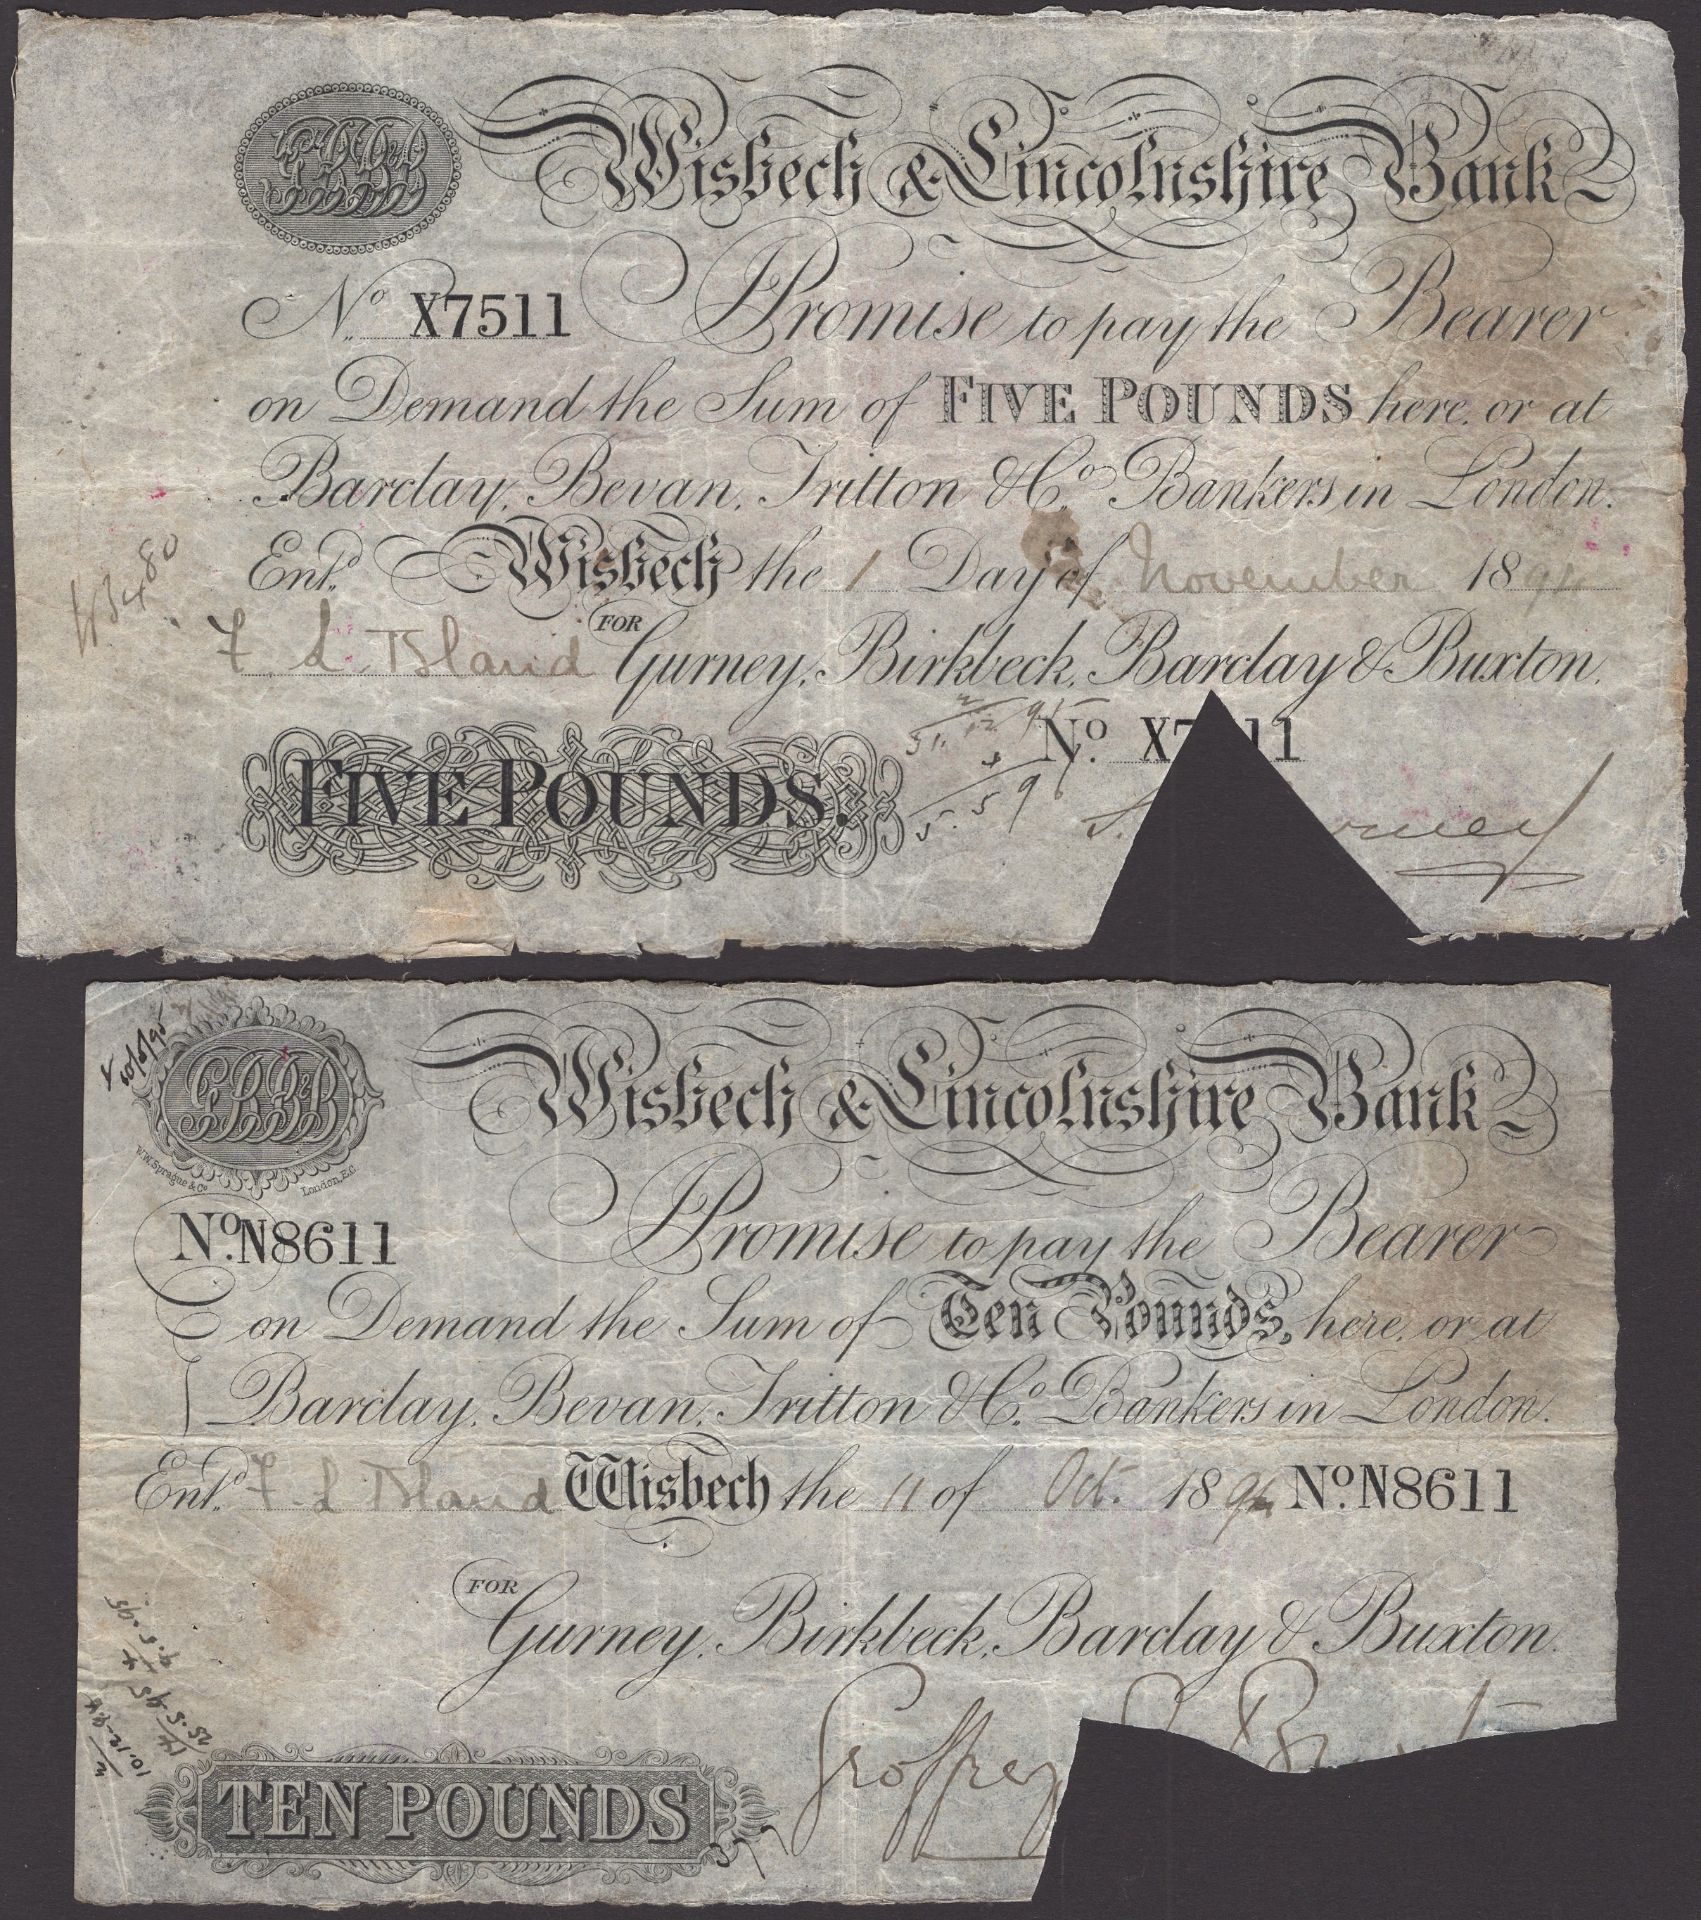 Wisbech & Lincolnshire Bank
No. X7511 Promise to pay the Bearer
on Demand the Sum of FIVE POUNDS here, or at
Barclay, Bevan, Tritton & Co. Bankers in London.
Entd. Wisbech the 1 Day of November 1894
F L Bland FOR Gurney, Birkbeck, Barclay & Buxton.
No. X7 11
FIVE POUNDS.
Wisbech & Lincolnshire Bank
GBB&B
W.W. Sprague & Co. London, E.C.
No. N8611 Promise to pay the Bearer
on Demand the Sum of Ten Pounds, here, or at
Barclay, Bevan, Tritton & Co. Bankers in London.
Entd. F. L Bland Wisbech the 11 of Oct. 1894 No. N8611
FOR
Gurney, Birkbeck, Barclay & Buxton.
Geoffrey
TEN POUNDS